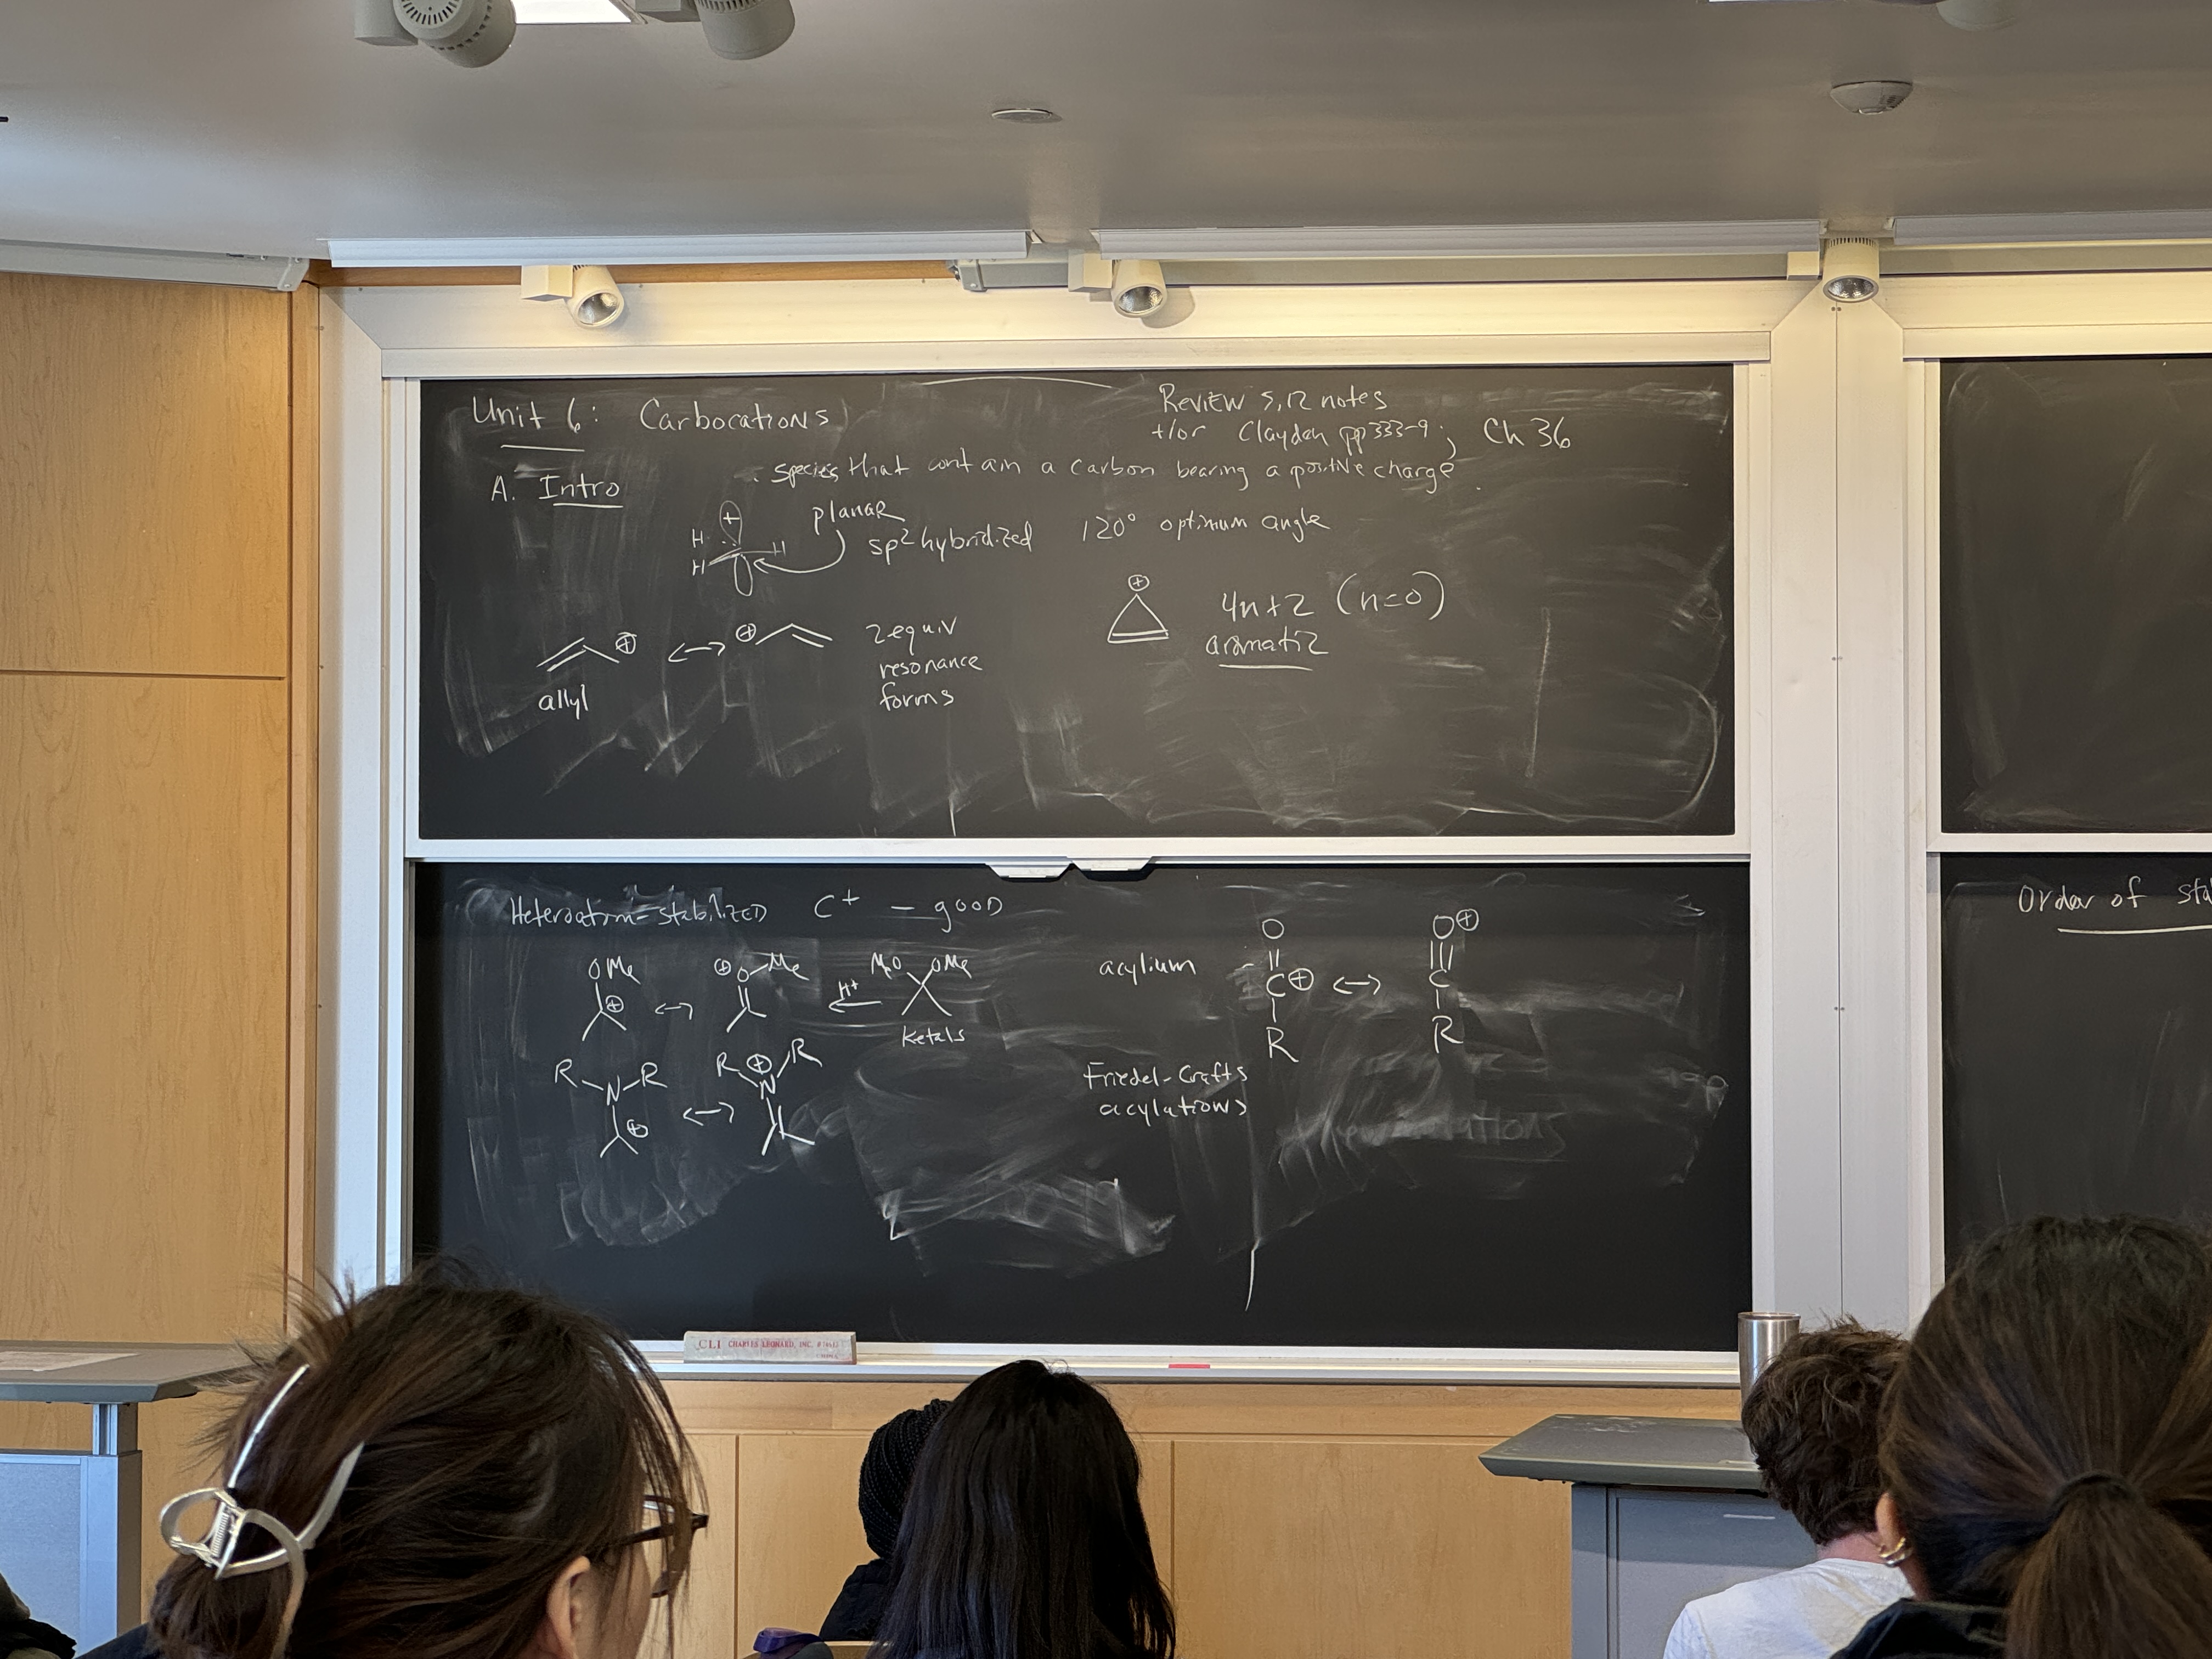 Unit 6: Carbocations
Review 5.12 notes
+/or Clayden pp 333-9; Ch 36
A. Intro
species that contain a carbon bearing a positive charge
+
H
H
H
planar
sp2 hybridized
120° optimum angle
⊕
4n+2 (n=0)
aromatic
⊕ ↔ ⊕
allyl
2 equiv
resonance
forms
Heteroatom-stabilized C+ – good
OMe
⊕
↔
⊕O Me
H+
MeO OMe
ketals
R N R
⊕
↔
R ⊕ R
N
acylium
O
C⊕
R
↔
O⊕
C
R
Friedel-Crafts
acylations
CLI CHARLES LEONARD, INC.
Order of